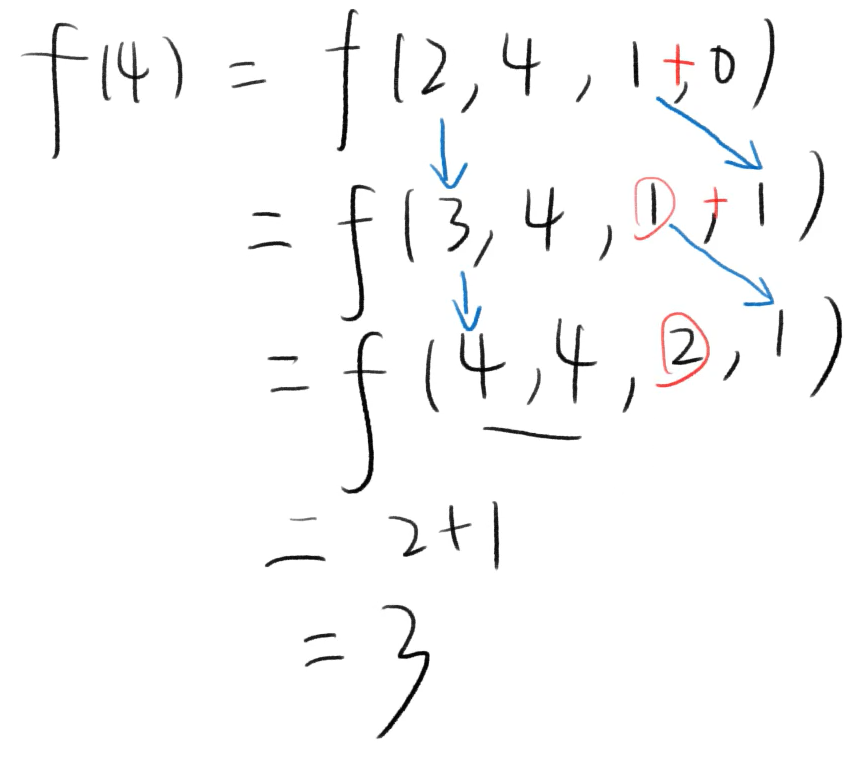 f(4) = f(2, 4, 1+, 0)
= f(3, 4, ①, + 1)
= f(4, 4, ②, 1)
= 2+1
= 3